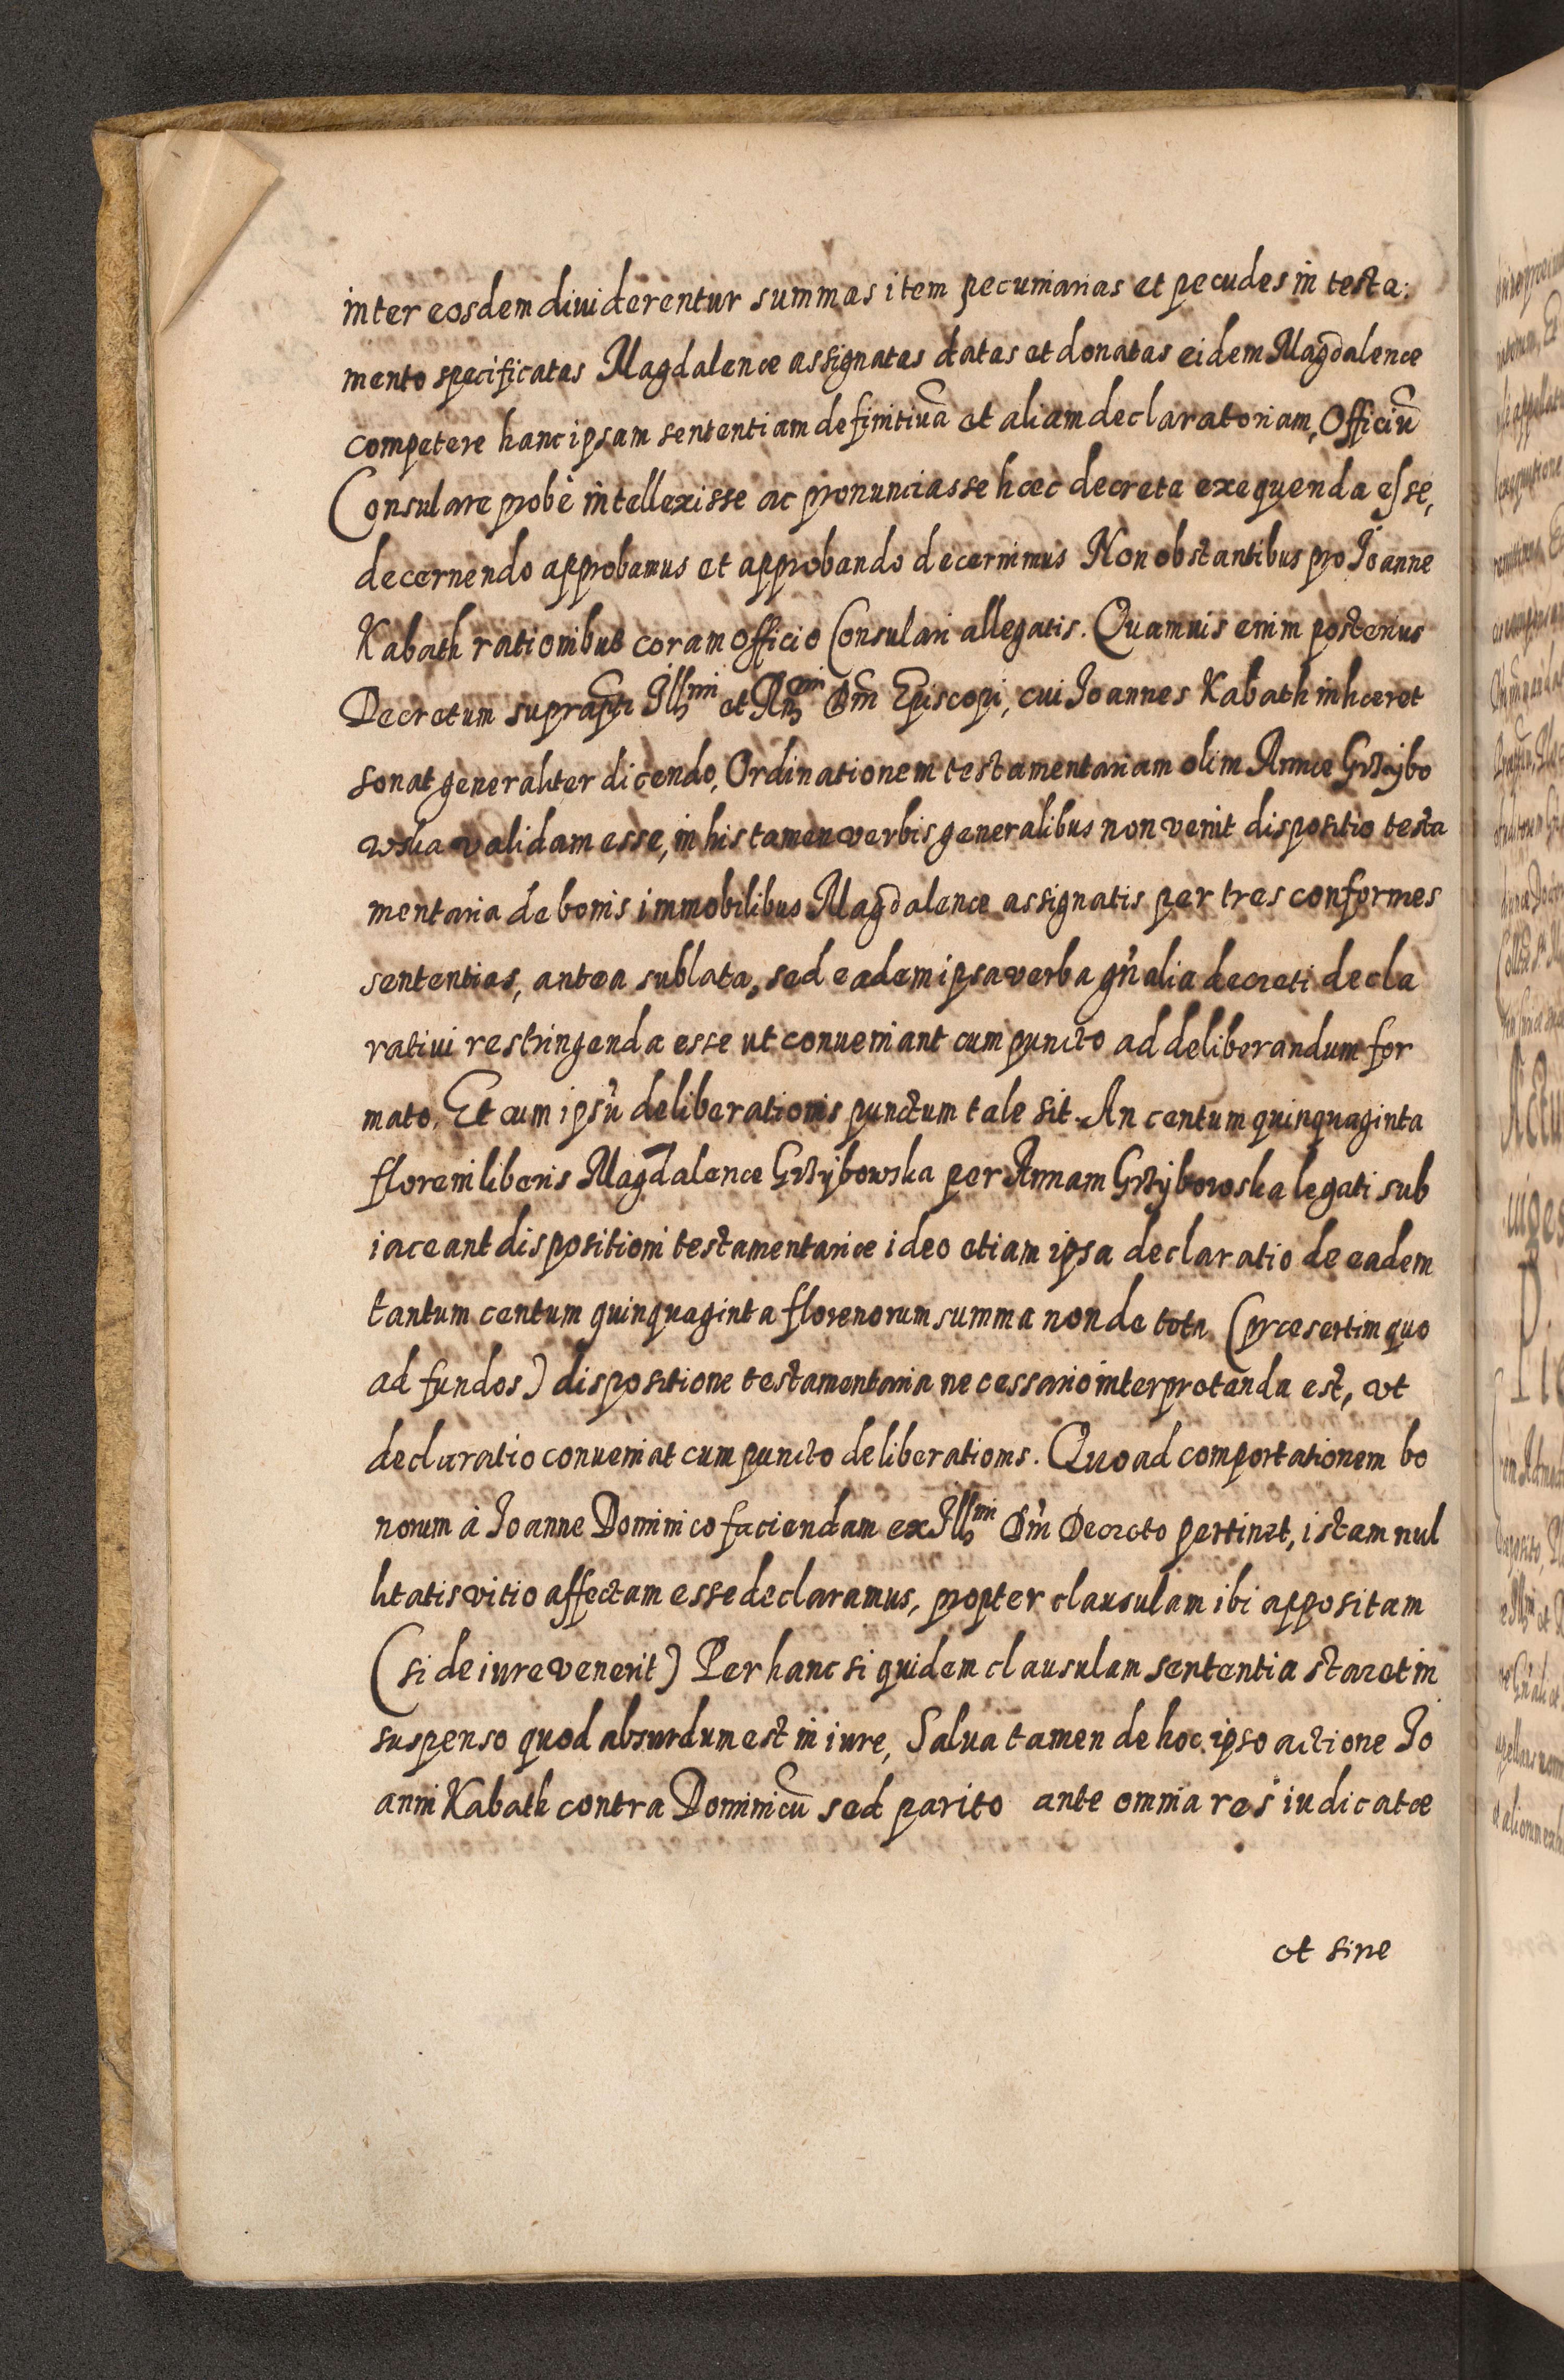 inter eosdem diuiderentur summas item pecuniarias et pecudes in testa:
mento specificatas Magdalenæ assignatas datas et donatas eidem Magdalenæ
competere hanc ipsam sententiam definitiuã et aliam declaratoriam, Officiũ
Consulare probè intellexisse ac pronunciasse hæc decreta exequenda esse,
decernendo approbamus et approbando decernimus Non obstantibus pro Joanne
Kabath rationibus coram officio Consulari allegatis. Quamuis enim posterius
Decretum suprapti Jllmi et Rmi Dni Episcopi, cui Joannes Kabath inhæret
sonat generaliter dicendo, Ordinationem testamentariam olim Annæ Grzybo
wska validam esse, in his tamen verbis generalibus non venit dispositio testa
mentaria de bonis immobilibus Magdalenæ assignatis per tres conformes
sententias, antea sublata, sed eadem ipsa verba gnalia decreti decla
ratiui restringenda esse ut conueniant cum puncto ad deliberandum for
mato. Et cum ipsũ deliberationis punctum tale sit. An centum quinquaginta
floreni liberis Magdalenæ Grzybowska per Annam Grzybowska legati sub
iaceant dispositioni testamentariæ ideo etiam ipsa declaratio de eadem
tantum centum quinquaginta florenorum summa non de tota (præsertim quo
ad fundos) dispositione testamentaria necessario interpretanda est, vt
declaratio conueniat cum puncto deliberationis. Quo ad comportationem bo
norum à Joanne Dominico faciendam ex Jllmi Dni Decreto pertinet, istam nul
litatis vitio affectam esse declaramus, propter clausulam ibi appositam
(si de iure venerit) Per hanc siquidem clausulam sententia staret in
suspenso quod absurdum est in iure, Salua tamen de hoc ipso actione Jo
anni Kabath contra Dominicũ sed parito ante omnia rei iudicatæ
et sine